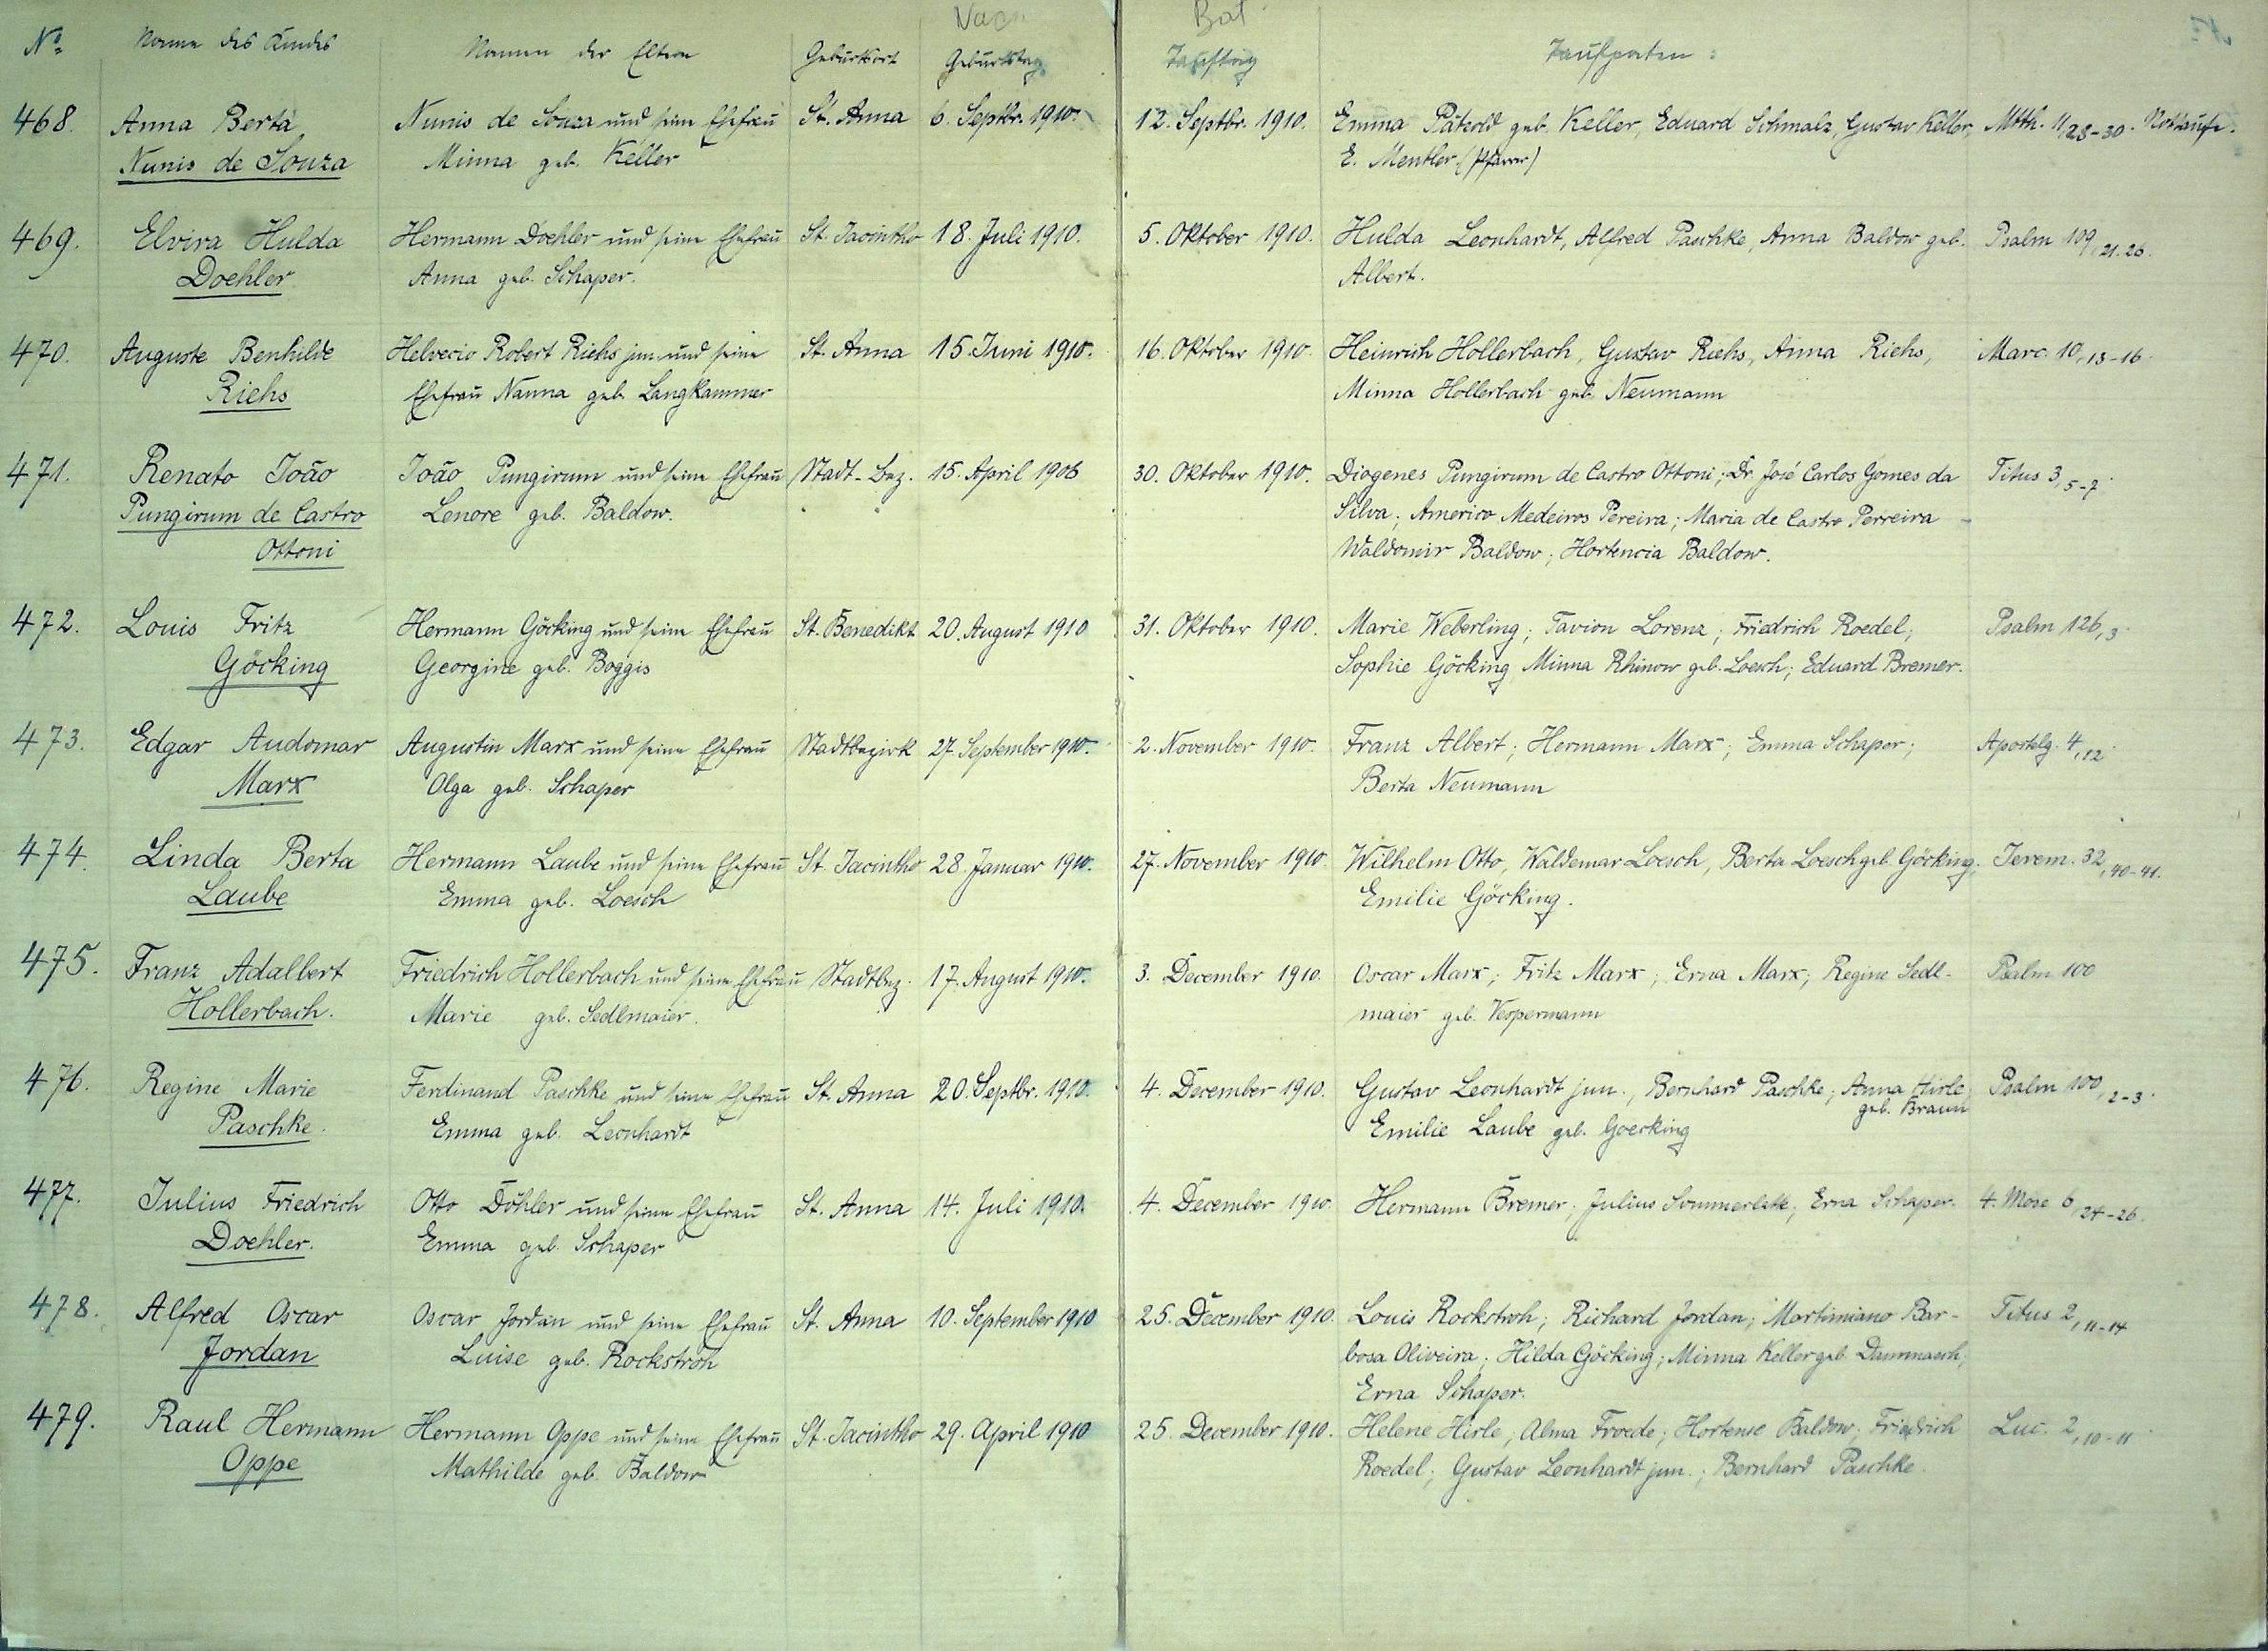 Nasc Bat.
No Name des Kindes Namen der Eltern Geburtsort Geburtstag Tauftag Taufpaten:
468. Anna Berta Nunis de Souza und seine Ehefrau St. Anna 6. Septbr. 1910. 12. Septbr. 1910. Emma Pätzold geb. Keller, Eduard Schmalz, Gustav Keller, Mtth. 11,28-30. Nottaufe.
Nunis de Souza Minna geb. Keller E. Mentler (Pfarrer)
469. Elvira Hulda Hermann Doehler und seine Ehefrau St. Jacintho 18. Juli 1910. 5. Oktober 1910. Hulda Leonhardt, Alfred Paschke, Anna Baldow geb. Psalm 109,21.26.
Doehler Anna geb. Schaper. Albert.
470. Auguste Benhilde Helvecio Robert Riehs jun. und seine St. Anna 15. Juni 1910. 16. Oktober 1910. Heinrich Hollerbach, Gustav Riehs, Anna Riehs, Marc. 10,13-16.
Riehs Ehefrau Nanna geb. Langkammer Minna Hollerbach geb. Neumann
471. Renato João João Pungirum und seine Ehefrau Stadt-Bez. 15. April 1906 30. Oktober 1910. Diogenes Pungirum de Castro Ottoni; Dr. José Carlos Gomes da Titus 3,5-7.
Pungirum de Castro Lenore geb. Baldow. Silva; Americo Medeiros Pereira; Maria de Castro Perreira -
Ottoni Waldomir Baldow; Hortencia Baldow.
472. Louis Fritz Hermann Göcking und seine Ehefrau St. Benedikt 20. August 1910 31. Oktober 1910. Marie Weberling; Tavion Lorenz; Friedrich Roedel; Psalm 126,3.
Göcking Georgine geb. Boggis Sophie Göcking Minna Rhinow geb. Loesch; Eduard Bremer.
473. Edgar Audomar Augustin Marx und seine Ehefrau Stadtbezirk 27. September 1910. 2. November 1910. Franz Albert; Hermann Marx; Emma Schaper; Apostelg. 4,12.
Marx Olga geb. Schaper Berta Neumann
474. Linda Berta Hermann Laube und seine Ehefrau St. Jacintho 28. Januar 1910. 27. November 1910. Wilhelm Otto, Waldemar Loesch, Berta Loesch geb. Göcking; Jerem. 32,40-41.
Laube Emma geb. Loesch Emilie Göcking.
475. Franz Adalbert Friedrich Hollerbach und seine Ehefrau Stadtbez. 17. August 1910. 3. December 1910. Oscar Marx; Fritz Marx; Erna Marx; Regine Sedl- Psalm 100
Hollerbach. Marie geb. Sedlmaier. maier geb. Vespermann
476. Regine Marie Ferdinand Paschke und seine Ehefrau St. Anna 20. Septbr. 1910. 4. December 1910. Gustav Leonhardt jun., Bernhard Paschke; Anna Hirle Psalm 100,2-3.
geb. Braun
Paschke. Emma geb. Leonhardt Emilie Laube geb. Goecking
477. Julius Friedrich Otto Döhler und seine Ehefrau St. Anna 14. Juli 1910. 4. December 1910. Hermann Bremer; Julius Sommerlatte; Erna Schaper. 4. Mose 6,24-26.
Doehler. Emma geb. Schaper
478. Alfred Oscar Oscar Jordan und seine Ehefrau St. Anna 10. September 1910 25. December 1910. Louis Rockstroh; Richard Jordan; Martimiano Bar- Titus 2,11-14
Jordan Luise geb. Rockstroh bosa Oliveira; Hilda Göcking; Minna Keller geb. Dammasch;
Erna Schaper.
479. Raul Hermann Hermann Oppe und seine Ehefrau St. Jacintho 29. April 1910 25. December 1910. Helene Hirle; Alma Froede; Hortense Baldow; Friedrich Luc. 2,10-11.
Oppe Mathilde geb. Baldow Roedel; Gustav Leonhardt jun.; Bernhard Paschke.